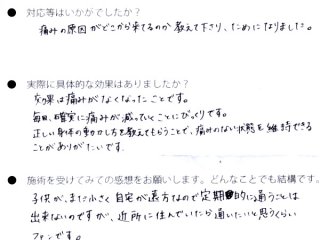 ● 対応等はいかがでしたか？
痛みの原因がどこから来てるのか教えて下さり、ためになりました。
● 実際に具体的な効果はありましたか？
効果は痛みがなくなったことです。
毎日、確実に痛みが減っていくことにびっくりです。
正しい身体の動かし方を教えてもらうことで、痛みのない状態を維持できる
ことがありがたいです。
● 施術を受けてみての感想をお願いします。どんなことでも結構です。
子供が、まだ小さく自宅が遠方なので定期的に通うことは
出来ないのですが、近所に住んでいたら通いたいと思うくらい
ファンです。